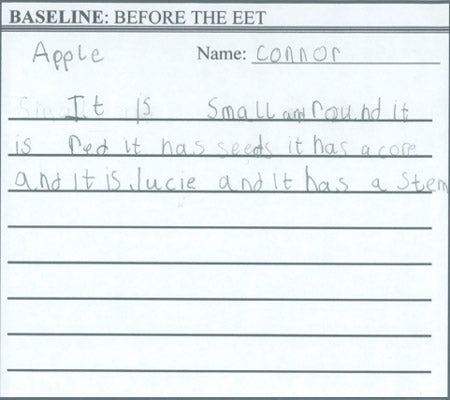 BASELINE: BEFORE THE EET
Apple Name: Connor
It is small and round it
is red it has seeds it has a core
and it is Jucie and it has a stem